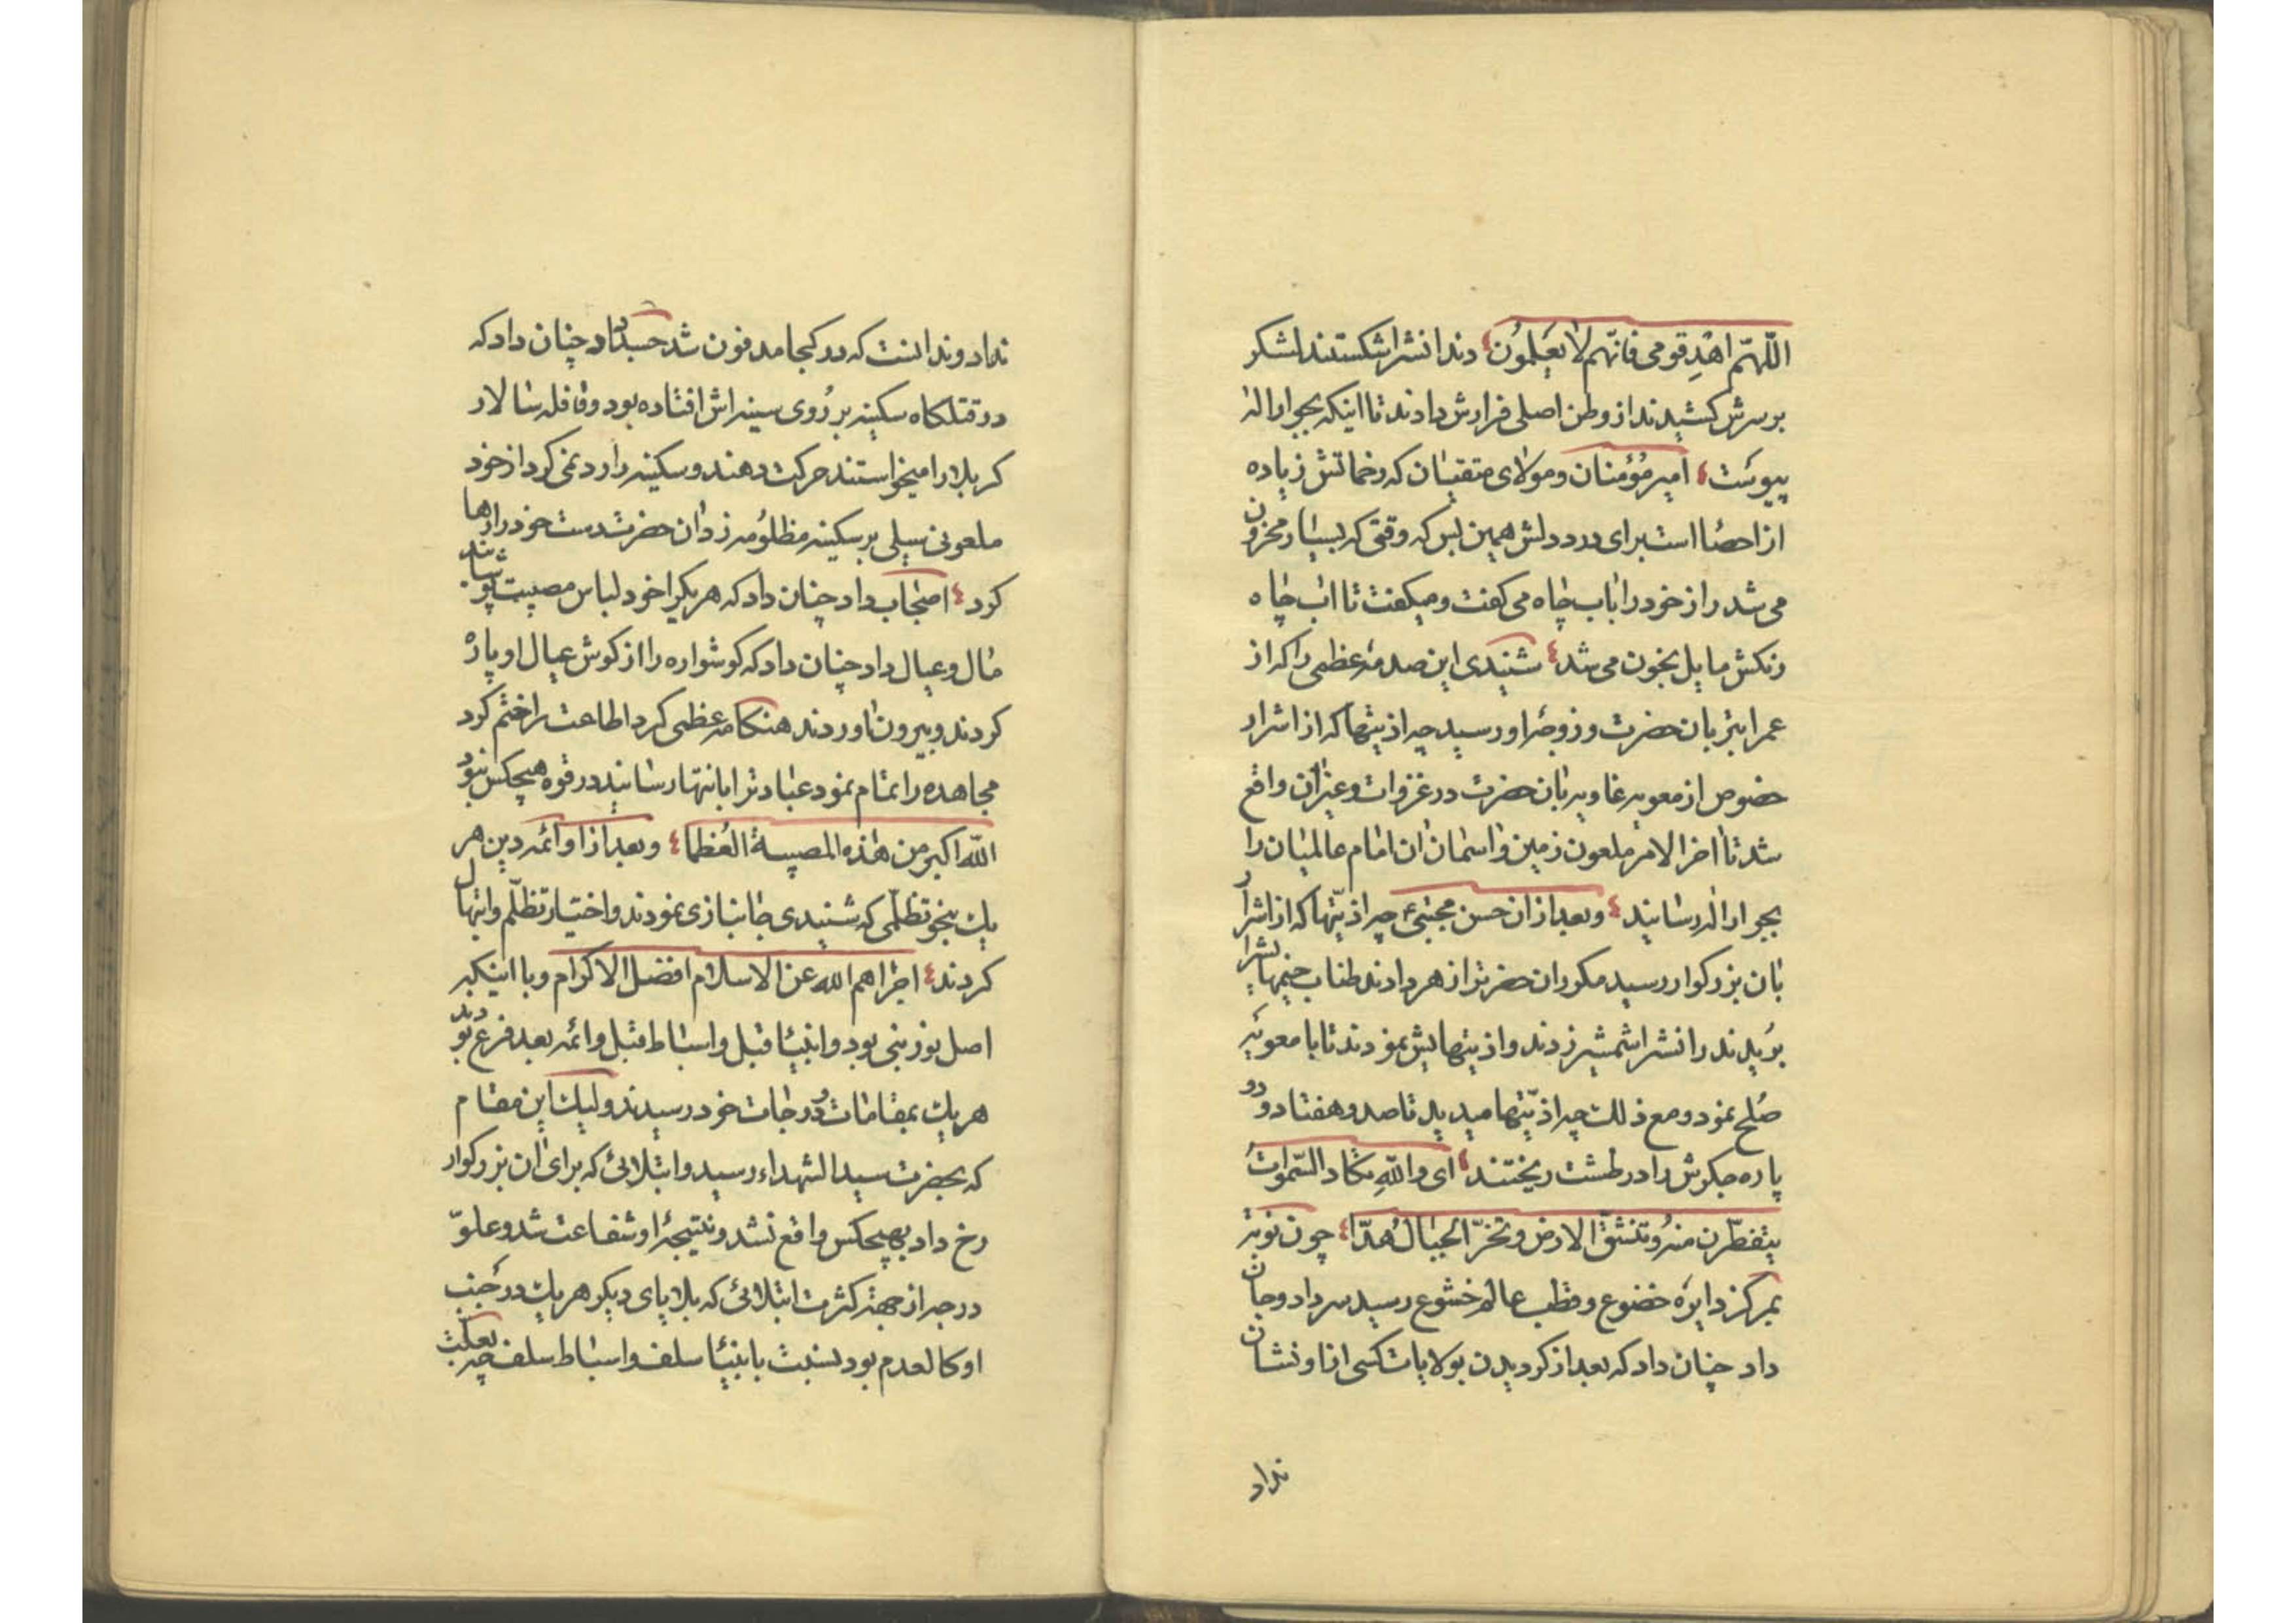 اللّهمّ اهْدِ قومی فانّهم لا یَعلمُون دندانشرا شکستند لشکر
برسرش کشیدند از وطن اصلی فرارش دادند تا اینکه بجوار اله
پیوست امیر مُؤمنان و مولای متقیان که زخماتش زیاده
از احصا است برای درد دلش همین بس که وقتی که بسیار محزون
می شد راز خود را باب چاه می کفت و میکفت تا اب چاه
رنکش مایل بخون می شد شنیدی این صدمهٔ عظمی را که از
عمر ابتر بان حضرت و زوجهٔ او رسید چه اذیتها که از اشرار
خصوص از معویه غاویه بان حضرت در غزوات و غیران واقع
شد تا اخر الامر ملعون زمین و اسمان ان امام عالمیان را
بجوار اله رسانید و بعد از ان حسن مجتبی چه اذیّتها که از اشرار
بان بزرکوار رسید مکرر ان حضرترا زهر دادند طناب خیمهایشرا
بُریدند رانشرا شمشیر زدند و اذیتهایش نمودند تا با معویه
صُلح نمود و مع ذلک چه اذیّتها میدید تا صد و هفتاد و دو
پاره جکرش را در طشت ریختند ای والله تکاد السّموات
یتفطّرن منه و تنشقّ الارض و تخرّ الجبال هُدّا چون نوبه
بمرکز دایرهٔ خضوع و قطب عالم خشوع رسید سر داد و جان
داد چنان داد که بعد از کردیدن بولایات کسی از او نشان
نداد
نداد و ندانست که در کجا مدفون شد جسد داد چنان داد که
در قتلکاه سکینه بر رُوی سینه اش افتاده بود و قافله سالار
کربلا را میخواستند حرکت دهند و سکینه را رد نمی کرد از خود
ملعونی سیلی بر سکینه مظلُومه زد ان حضرت دست خود را رها
کرد اصحاب داد چنان داد که هر یکرا خود لباس مصیبت پوشانید
مٰال و عیال داد چنان داد که کوشواره را از کوش عیال او پاره
کردند و بیرون اوردند هنکامه عظمی کرد اطاعت را ختم کرد
مجاهده را تمام نمود عبادترا بانتها رسانید در قوه هیچکس نبود
الله اکبر من هٰذه المصیبة العُظما و بعد از او ائمه دین هر
یک بنحو تظلّمی که شنیدی جانبازی نمودند و اختیار تظلّم و ابتهال
کردند اجراهم الله عن الاسلام افضل الاکرام و با اینکه
اصل نور نبی بود و انبیٰا قبل و اسباط قبل و ائمه بعد فرع بودند
هر یک بمقامات و درجات خود رسیدند و لیک این مقام
که بحضرت سید الشهداء رسید و ابتلائی که برای ان بزرکوار
رخ داد بهیچکس واقع نشد و نتیجهٔ او شفاعت شد و علوّ
درجه از جهة کثرت ابتلائی که بلایای دیکر هر یک در جنب
او کالعدم بود بنسبت بانبیٰا سلف و اسباط سلف چه